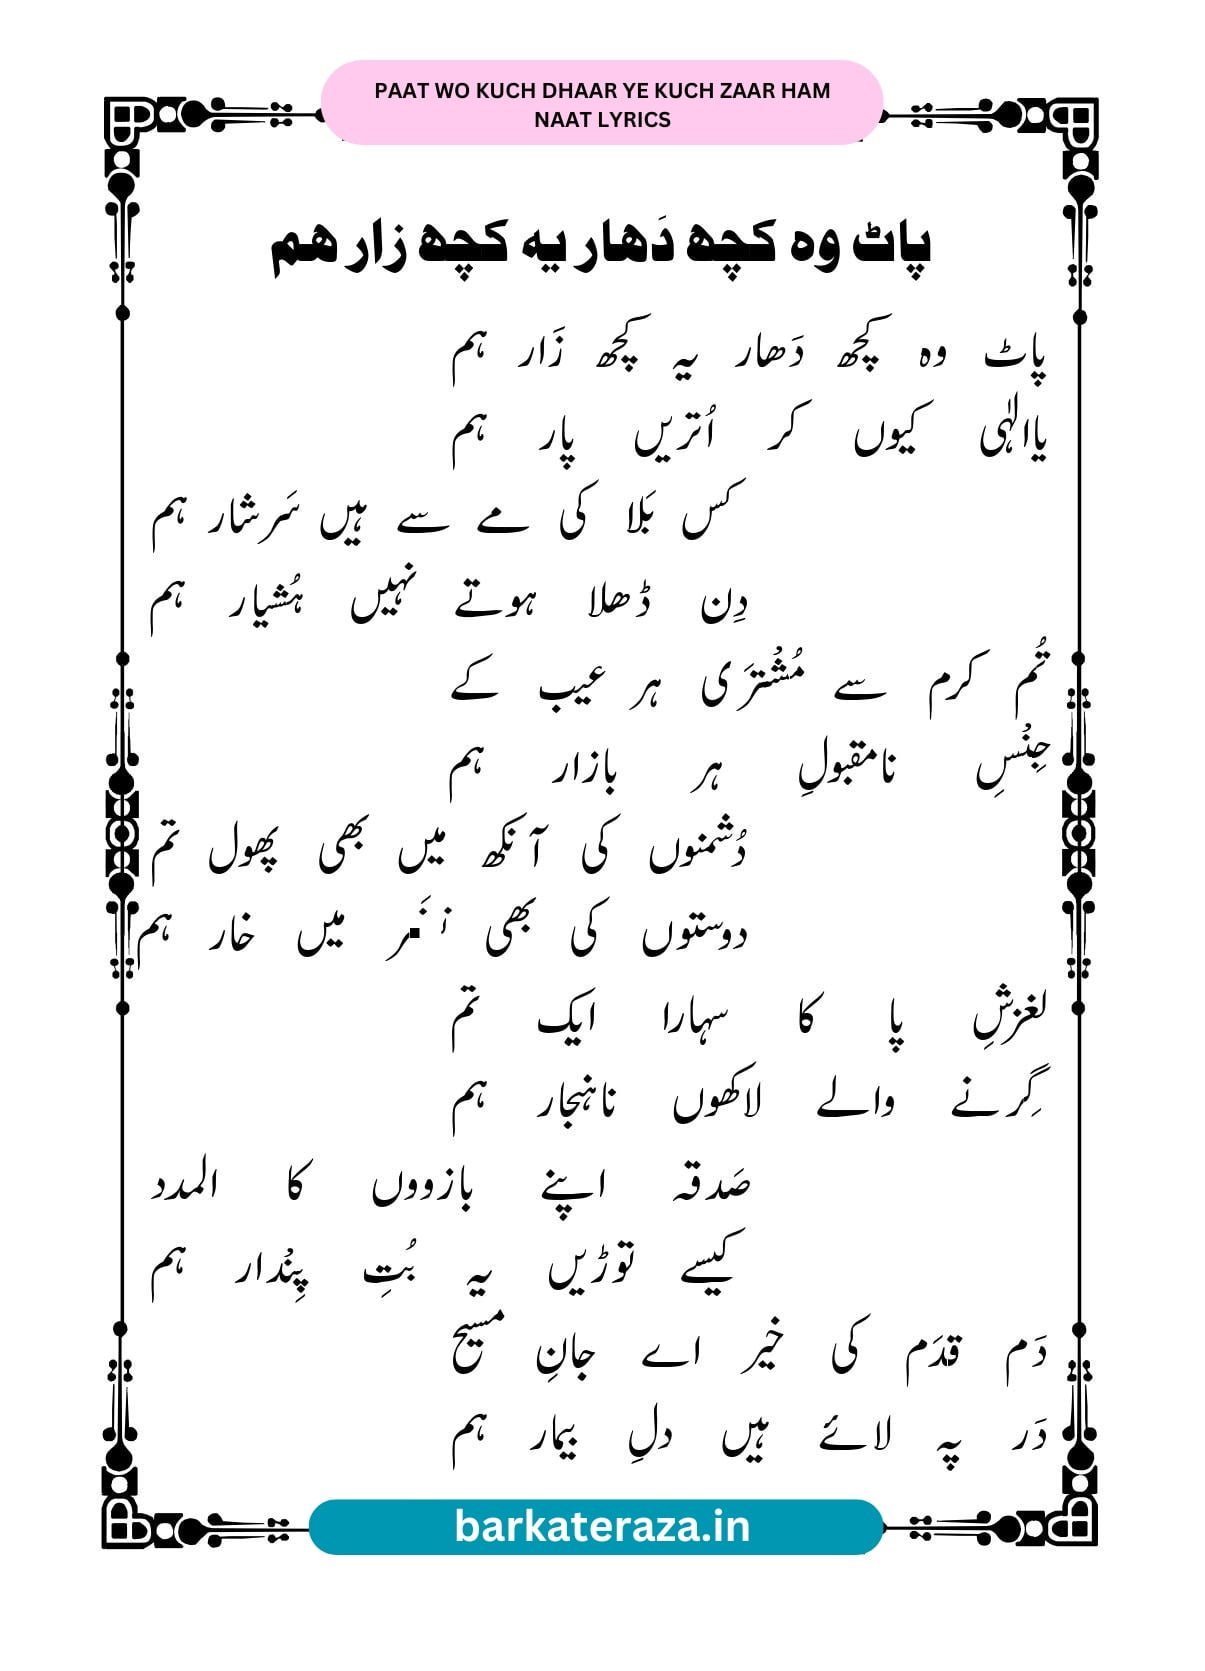 PAAT WO KUCH DHAAR YE KUCH ZAAR HAM
NAAT LYRICS
پاٹ وہ کچھ دَھار یہ کچھ زار ھم
پاٹ وہ کچھ دَھار یہ کچھ زَار ہم
یاالٰہی کیوں کر اُتریں پار ہم
کس بَلا کی مے سے ہیں سَرشار ہم
دِن ڈھلا ہوتے نہیں ہُشیار ہم
تُم کرم سے مُشْتَرَی ہر عیب کے
جِنْسِ نامقبولِ ہر بازار ہم
دُشمنوں کی آنکھ میں بھی پھول تم
دوستوں کی بھی میں خار ہم
لغزشِ پا کا سہارا ایک تم
گِرنے والے لاکھوں ناہنجار ہم
صَدقہ اپنے بازووں کا المدد
کیسے توڑیں یہ بُتِ پِنْدار ہم
دَم قدَم کی خیر اے جانِ مسیح
دَر پہ لائے ہیں دلِ بیمار ہم
barkateraza.in